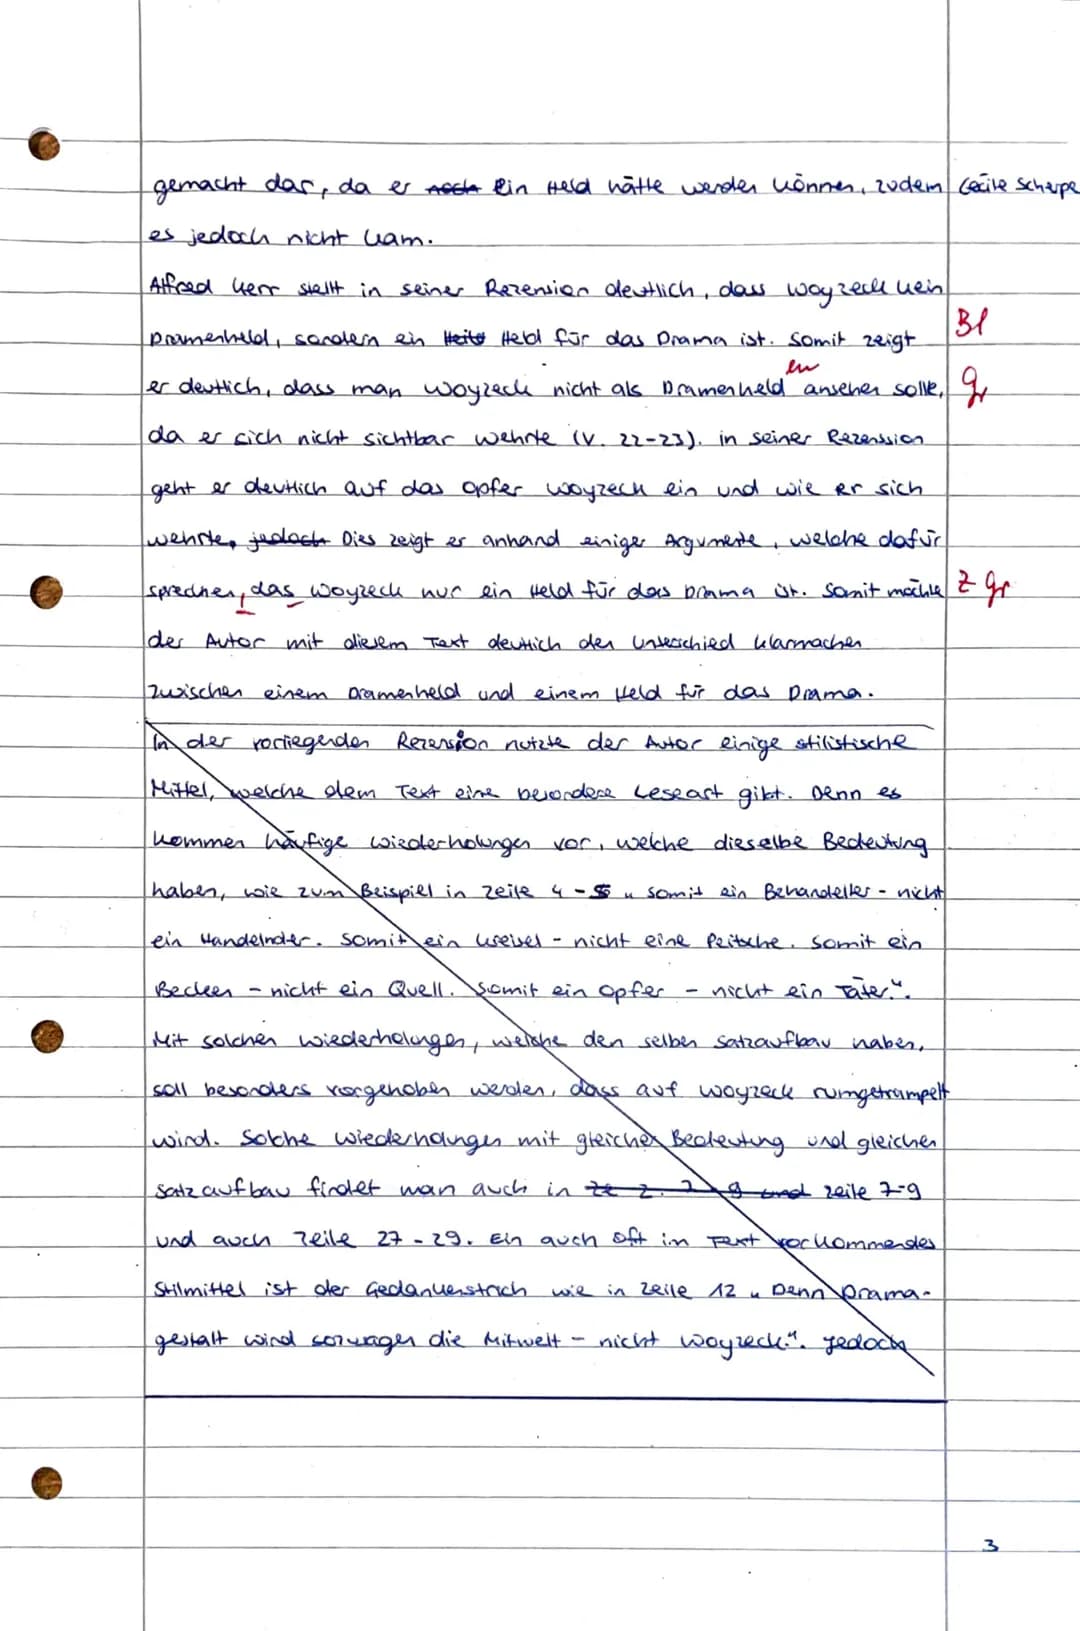 gemacht dar, da er noch ein Held hätte werden können, zudem Cecile Scherpe
es jedoch nicht kam.
Alfred Kerr stellt in seiner Rezension deutlich, dass Woyzeck kein
Dramenheld, sondern ein Held für das Drama ist. Somit zeigt Bl
en
er deutlich, dass man Woyzeck nicht als Dramenheld ansehen solle, gr
da er sich nicht sichtbar wehrte (V. 22-23). in seiner Rezenssion
geht er deutlich auf das Opfer Woyzeck ein und wie er sich
wehrte, jedoch Dies zeigt er anhand einiger Argumente, welche dafür
sprechen, das Woyzeck nur ein Held für das Drama ist. Somit möchte Z gr
der Autor mit diesem Text deutlich den Unterschied klarmachen
zwischen einem Dramenheld und einem Held für das Drama.
In der vorliegenden Rezension nutzte der Autor einige stilistische
Mittel, welche dem Text eine besondere Leseart gibt. Denn es
kommen häufige Wiederholungen vor, welche dieselbe Bedeutung
haben, wie zum Beispiel in Zeile 4-5 „Somit ein Behandelter - nicht
ein Handelnder. Somit ein Kreisel - nicht eine Peitsche. Somit ein
Becken - nicht ein Quell. Somit ein Opfer - nicht ein Täter.“.
Mit solchen Wiederholungen, welche den selben Satzaufbau haben,
soll besonders vorgehoben werden, dass auf Woyzeck rumgetrampelt
wird. Solche Wiederholungen mit gleicher Bedeutung und gleichen
Satzaufbau findet man auch in Ze Z. 7-9 und Zeile 7-9
und auch Zeile 27-29. Ein auch oft im Text vorkommendes
Stilmittel ist der Gedankenstrich wie in Zeile 12 „Denn Drama-
gestalt wird sozusagen die Mitwelt - nicht Woyzeck.“. Jedoch
3